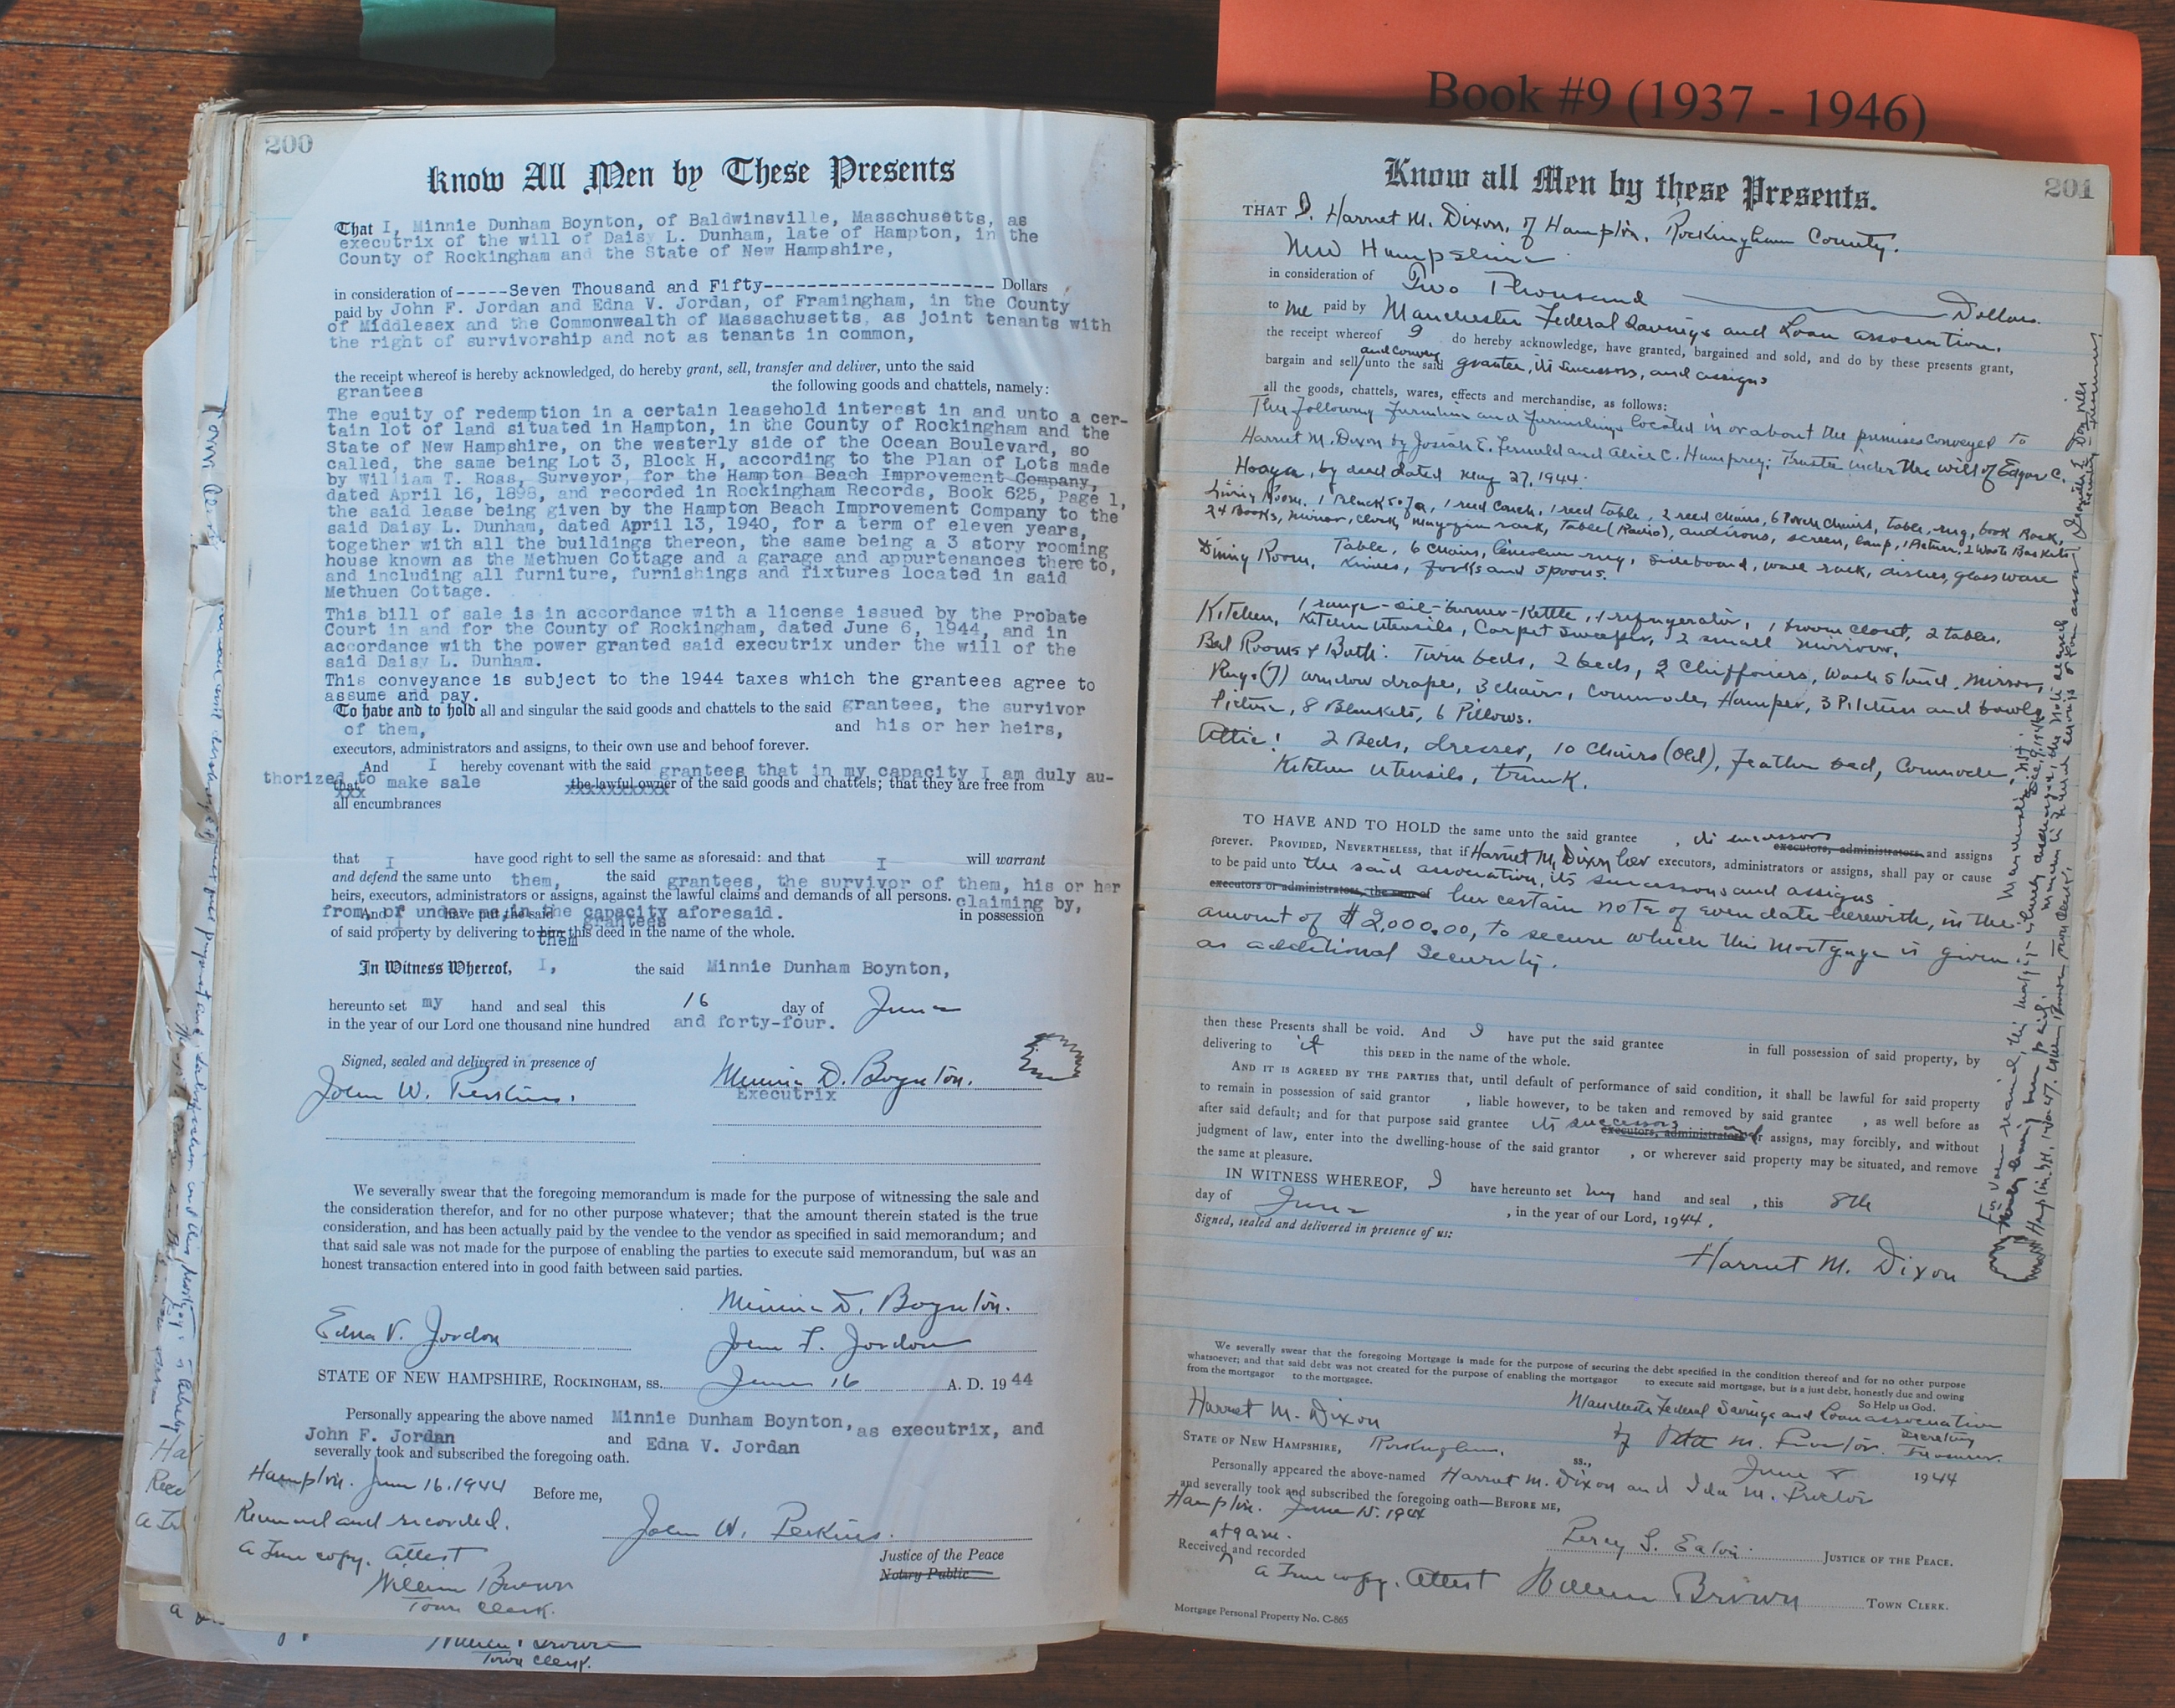 Book #9 (1937 - 1946)
200
Know All Men by These Presents
That I, Minnie Dunham Boynton, of Baldwinsville, Masschusetts, as
executrix of the will of Daisy L. Dunham, late of Hampton, in the
County of Rockingham and the State of New Hampshire,
in consideration of -----Seven Thousand and Fifty---------------------- Dollars
paid by John F. Jordan and Edna V. Jordan, of Framingham, in the County
of Middlesex and the Commonwealth of Massachusetts, as joint tenants with
the right of survivorship and not as tenants in common,
the receipt whereof is hereby acknowledged, do hereby grant, sell, transfer and deliver, unto the said
grantees the following goods and chattels, namely:
The equity of redemption in a certain leasehold interest in and unto a cer-
tain lot of land situated in Hampton, in the County of Rockingham and the
State of New Hampshire, on the westerly side of the Ocean Boulevard, so
called, the same being Lot 3, Block H, according to the Plan of Lots made
by William T. Ross, Surveyor, for the Hampton Beach Improvement Company,
dated April 16, 1898, and recorded in Rockingham Records, Book 625, Page 1,
the said lease being given by the Hampton Beach Improvement Company to the
said Daisy L. Dunham, dated April 13, 1940, for a term of eleven years,
together with all the buildings thereon, the same being a 3 story rooming
house known as the Methuen Cottage and a garage and appurtenances thereto,
and including all furniture, furnishings and fixtures located in said
Methuen Cottage.
This bill of sale is in accordance with a license issued by the Probate
Court in and for the County of Rockingham, dated June 6, 1944, and in
accordance with the power granted said executrix under the will of the
said Daisy L. Dunham.
This conveyance is subject to the 1944 taxes which the grantees agree to
assume and pay.
To have and to hold all and singular the said goods and chattels to the said grantees, the survivor
of them, and his or her heirs,
executors, administrators and assigns, to their own use and behoof forever.
And I hereby covenant with the said grantees that in my capacity I am duly au-
thorized to make sale
that the lawful owner of the said goods and chattels; that they are free from
all encumbrances
that I have good right to sell the same as aforesaid: and that I will warrant
and defend the same unto them, the said grantees, the survivor of them, his or her
heirs, executors, administrators or assigns, against the lawful claims and demands of all persons. claiming by,
from, or under me, in the capacity aforesaid.
And I have put the said grantees in possession
of said property by delivering to him them this deed in the name of the whole.
In Witness Whereof, I, the said Minnie Dunham Boynton,
hereunto set my hand and seal this 16 day of June
in the year of our Lord one thousand nine hundred and forty-four.
Signed, sealed and delivered in presence of
John W. Perkins. Minnie D. Boynton.
Executrix
We severally swear that the foregoing memorandum is made for the purpose of witnessing the sale and
the consideration therefor, and for no other purpose whatever; that the amount therein stated is the true
consideration, and has been actually paid by the vendee to the vendor as specified in said memorandum; and
that said sale was not made for the purpose of enabling the parties to execute said memorandum, but was an
honest transaction entered into in good faith between said parties.
Minnie D. Boynton.
Edna V. Jordon John F. Jordon
STATE OF NEW HAMPSHIRE, ROCKINGHAM, SS. June 16 A. D. 1944
Personally appearing the above named Minnie Dunham Boynton, as executrix, and
John F. Jordan and Edna V. Jordan
severally took and subscribed the foregoing oath.
Hampton. June 16. 1944 Before me,
Received and recorded. John W. Perkins.
a True copy. Attest Justice of the Peace
Notary Public
William Brown
Town Clerk.
William Brown
Town Clerk.
201
Know all Men by these Presents.
THAT I, Harriet M. Dixon, of Hampton, Rockingham County.
New Hampshire
in consideration of Two Thousand Dollars.
to me paid by Manchester Federal Savings and Loan association.
the receipt whereof I do hereby acknowledge, have granted, bargained and sold, and do by these presents grant,
bargain and sell and convey unto the said grantee, its successors, and assigns
all the goods, chattels, wares, effects and merchandise, as follows:
The following furniture and furnishings located in or about the premises conveyed to
Harriet M. Dixon by Josiah E. Fernald and Alice C. Humphrey, Trustee under the will of Edgar C.
by deed dated May 27, 1944.
Living Room. 1 Black sofa, 1 reed couch, 1 reed table, 2 reed chairs, 6 Porch chairs, table, rug, book Rack,
24 Books, mirror, clock, magazine rack, Table (Radio), andirons, screen, lamp, 1 Picture, 2 Waste Baskets
Dining Room, Table, 6 chairs, linoleum rug, sideboard, wall rack, dishes, glassware
knives, forks and spoons.
Kitchen, 1 range-oil-burner-Kettle, 1 refrigerator, 1 broom closet, 2 tables,
Kitchen utensils, Carpet Sweeper, 2 small mirrors.
Bed Rooms & Bath: Twin beds, 2 beds, 2 Chiffoniers, Wash Stand, mirror,
Rugs (7) window drapes, 3 chairs, Commode, Hamper, 3 Pitchers and bowls,
Picture, 8 Blankets, 6 Pillows.
Attic: 2 Beds, dresser, 10 chairs (old), Feather bed, Commode,
Kitchen utensils, trunk.
TO HAVE AND TO HOLD the same unto the said grantee, its successors executors, administrators and assigns
forever. PROVIDED, NEVERTHELESS, that if Harriet M. Dixon her executors, administrators or assigns, shall pay or cause
to be paid unto the said association, its successors and assigns
executors or administrators, the sum of her certain note of even date herewith, in the
amount of $2,000.00, to secure which this mortgage is given
as additional Security.
then these Presents shall be void. And I have put the said grantee in full possession of said property, by
delivering to it this DEED in the name of the whole.
AND IT IS AGREED BY THE PARTIES that, until default of performance of said condition, it shall be lawful for said property
to remain in possession of said grantor , liable however, to be taken and removed by said grantee , as well before as
after said default; and for that purpose said grantee its successors executors, administrators or assigns, may forcibly, and without
judgment of law, enter into the dwelling-house of the said grantor , or wherever said property may be situated, and remove
the same at pleasure.
IN WITNESS WHEREOF, I have hereunto set my hand and seal , this 8th
day of June , in the year of our Lord, 1944.
Signed, sealed and delivered in presence of us:
Harriet M. Dixon
We severally swear that the foregoing Mortgage is made for the purpose of securing the debt specified in the condition thereof and for no other purpose
whatsoever; and that said debt was not created for the purpose of enabling the mortgagor to execute said mortgage, but is a just debt, honestly due and owing
from the mortgagor to the mortgagee. So Help us God.
Harriet M. Dixon Manchester Federal Savings and Loan association
by M. Proctor. Secretary Treasurer.
STATE OF NEW HAMPSHIRE, Rockingham. SS., June 8 1944
Personally appeared the above-named Harriet M. Dixon and Ida M. Proctor
and severally took and subscribed the foregoing oath—BEFORE ME,
Hampton. June 15. 1944
at 9 a.m. Percy S. Eaton JUSTICE OF THE PEACE.
Received and recorded
a True copy. Attest William Brown TOWN CLERK.
Mortgage Personal Property No. C-865